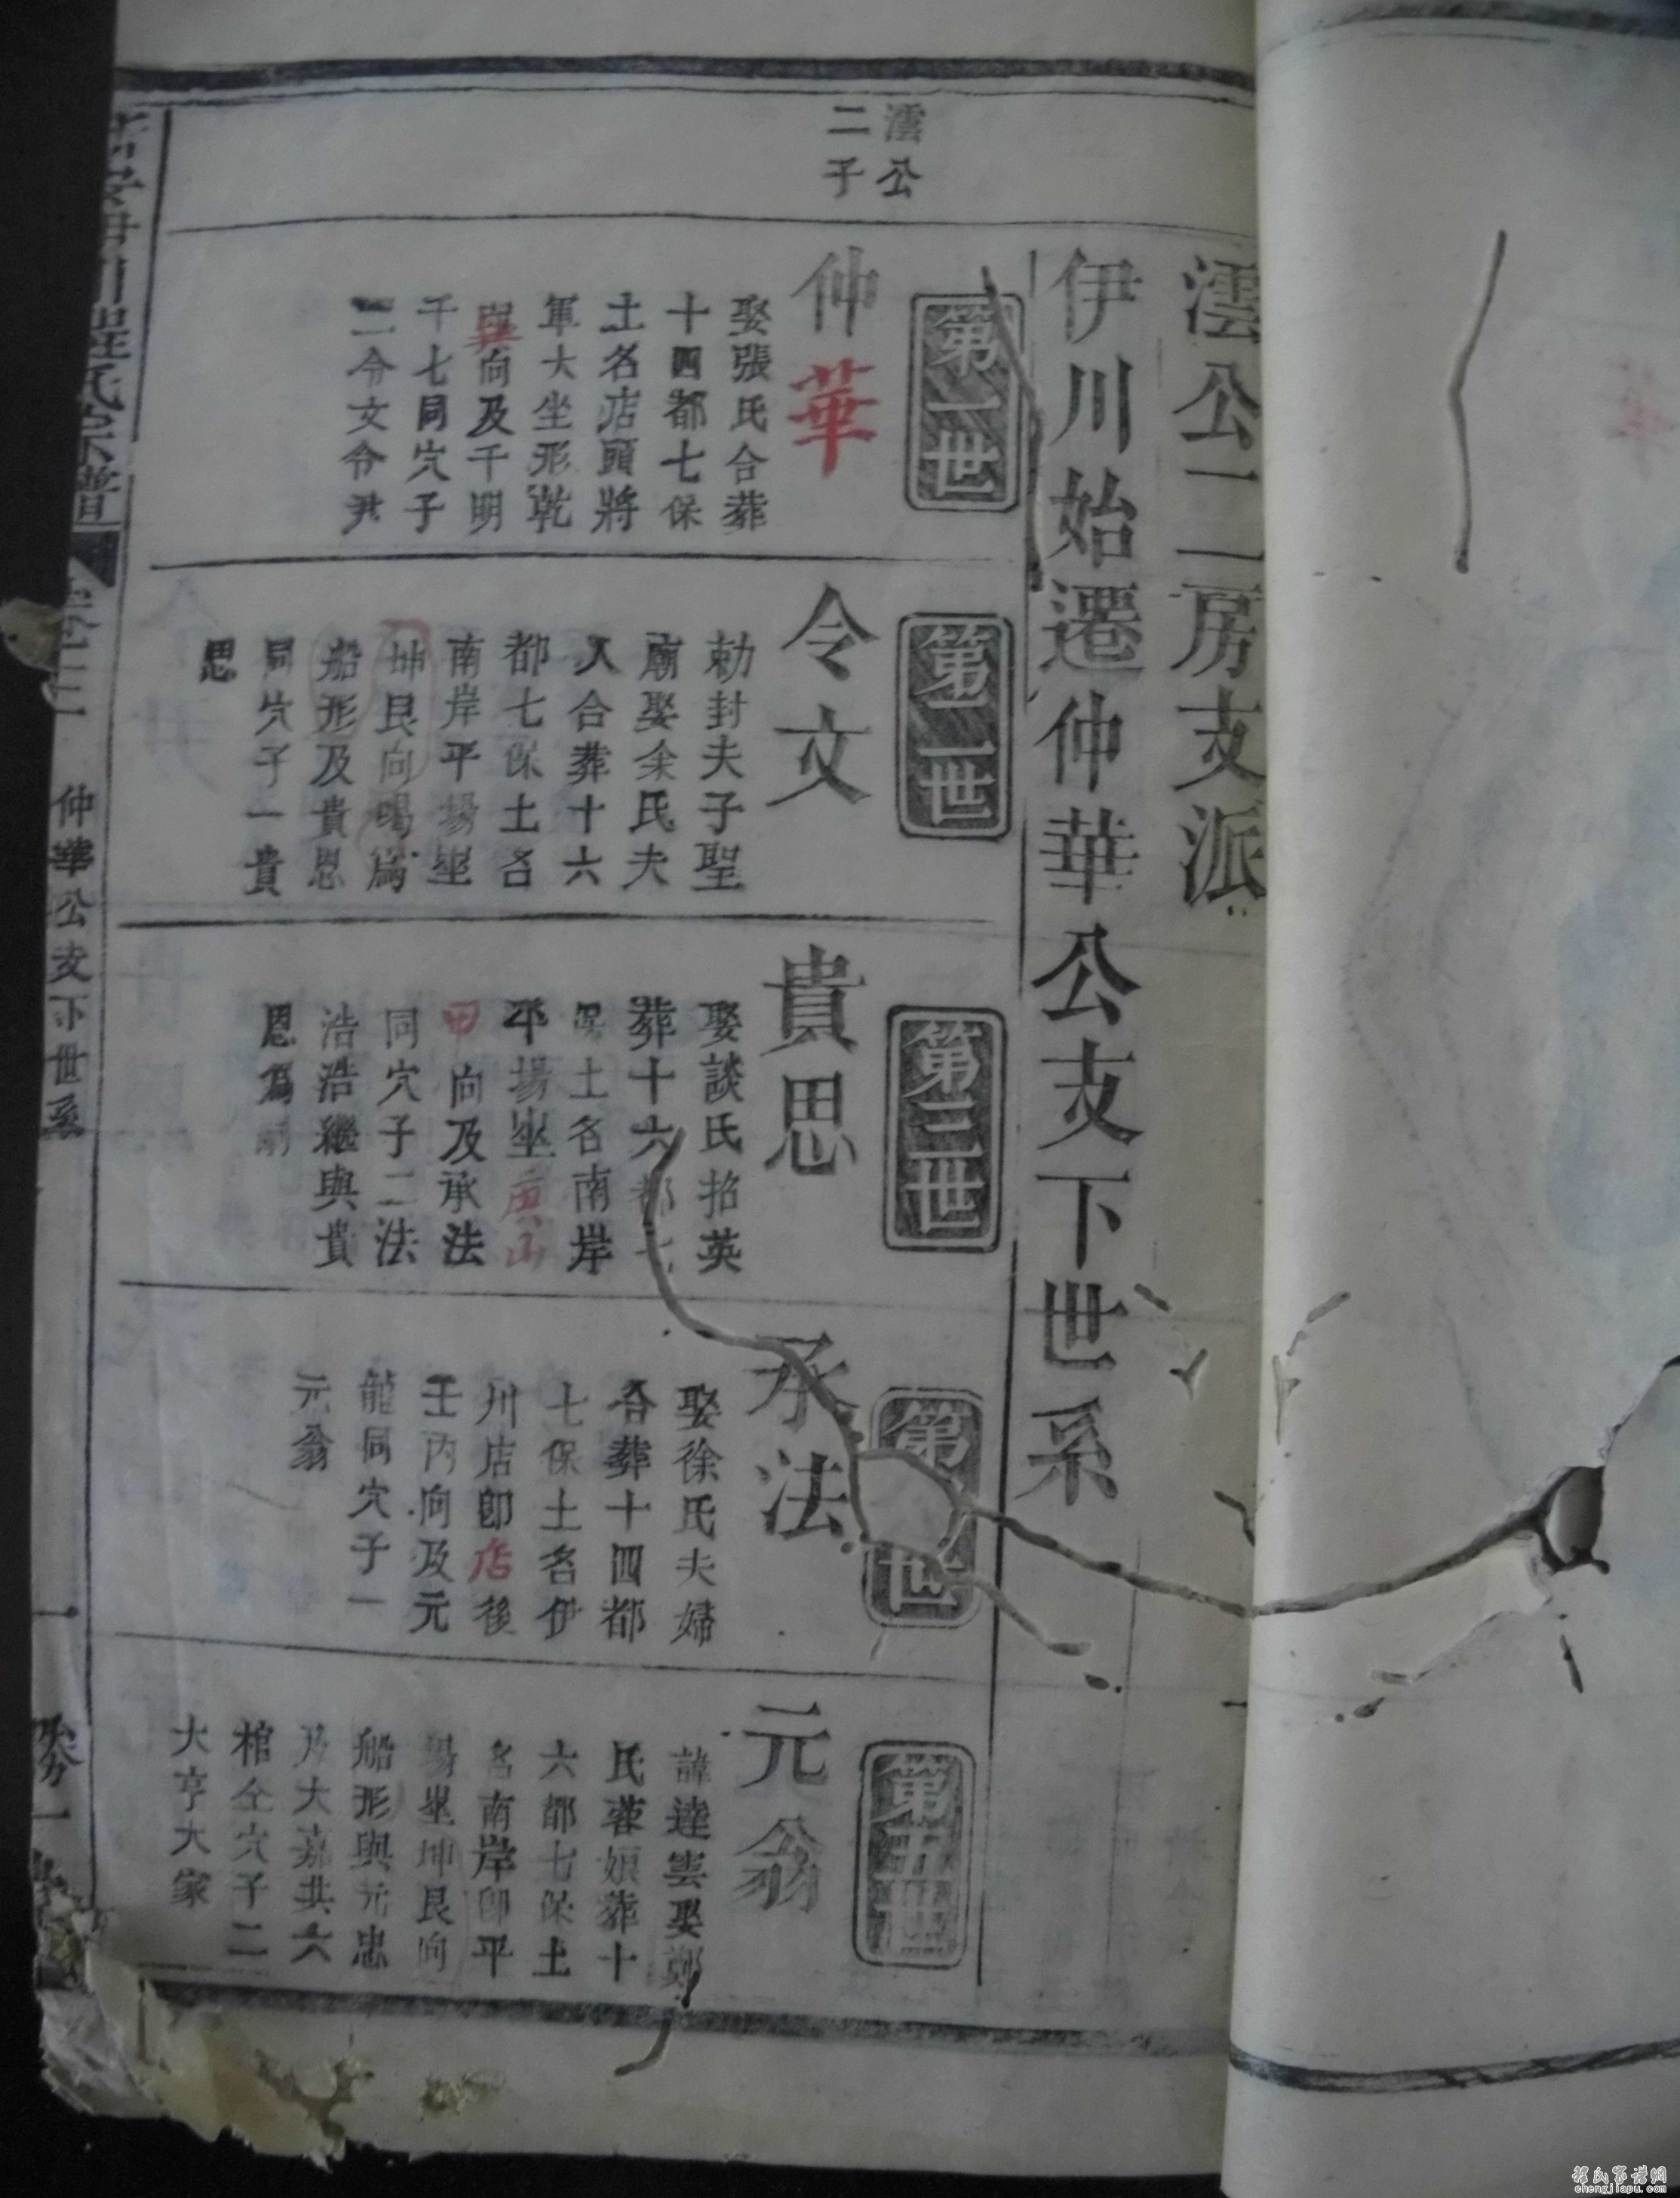 澐公二房支派
伊川始遷仲華公支下世系
澐公
二子
第一世
仲華
娶張氏合葬
十四都七保
土名店頭將
軍大坐形乾
巽向及千明
千七同穴子
二令文令尹
第二世
令文
勅封夫子聖
廟娶余氏夫
人合葬十六
都七保土名
南岸平場坐
坤艮向喝為
船形及貴思
同穴子一貴
思
第三世
貴思
娶談氏招英
葬十六都七
保土名南岸
平場坐庚山
甲向及承法
同穴子二法
浩浩繼與貴
恩為嗣
第世
承法
娶徐氏夫婦
合葬十四都
七保土名伊
川店卽店後
壬丙向及元
龍同穴子一
元翁
第五世
元翁
諱達雲娶鄭
氏蓉娘葬十
六都七保土
名南岸卽平
場坐坤艮向
船形與元忠
及大嘉共六
棺仝穴子二
大亨大家
伊川程氏宗譜
卷二
仲華公支下世系
一
程氏家譜網
chengjiapu.com